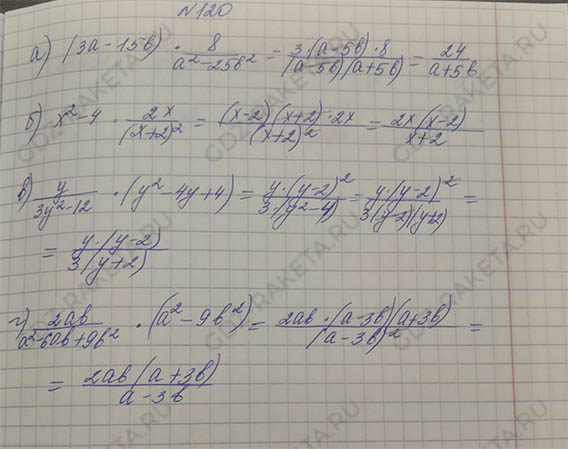 N120
а) (3a-15b) · 8/(a²-25b²) = 3·(a-5b)·8/((a-5b)(a+5b)) = 24/(a+5b)
б) x²-4 · 2x/(x+2)² = (x-2)(x+2)·2x/(x+2)² = 2x(x-2)/(x+2)
в) y/(3y²-12) · (y²-4y+4) = y·(y-2)²/(3·(y²-4)) = y·(y-2)²/(3(y-2)(y+2)) =
= y·(y-2)/(3(y+2))
г) 2ab/(a²-6ab+9b²) · (a²-9b²) = 2ab·(a-3b)(a+3b)/(a-3b)² =
= 2ab(a+3b)/(a-3b)
GDZ-RAKETA.RU